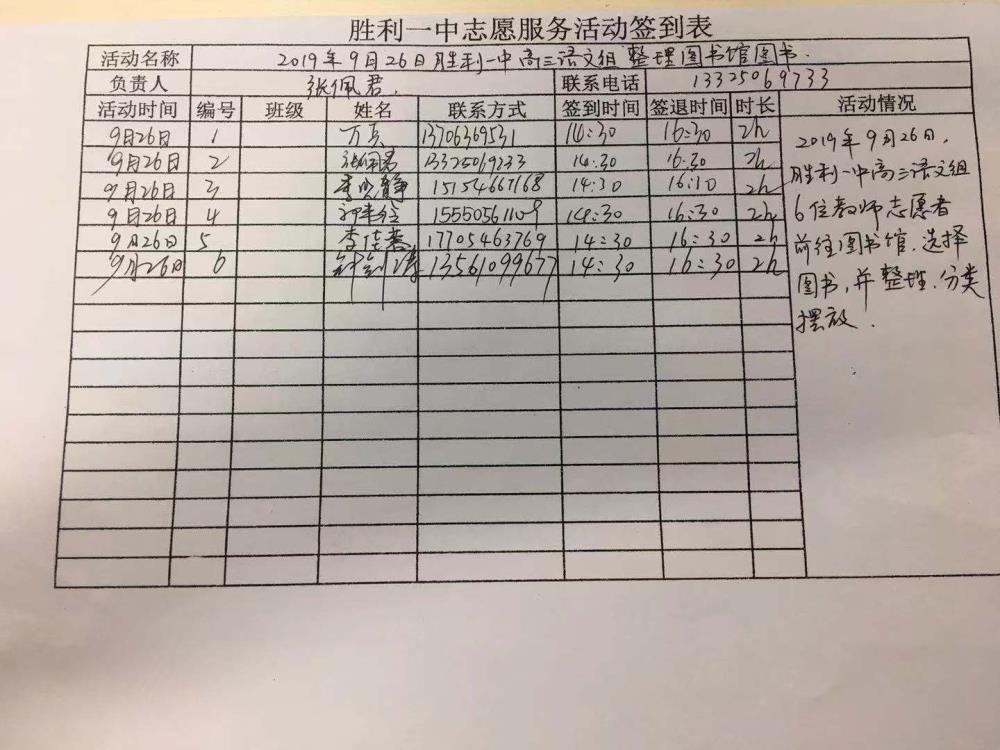 胜利一中志愿服务活动签到表
活动名称 2019年9月26日胜利一中高三语文组 整理图书馆图书.
负责人 张佩君. 联系电话 13325069733
活动时间 编号 班级 姓名 联系方式 签到时间 签退时间 时长 活动情况
9月26日 1 万真 13706369531 14:30 16:30 2h
9月26日 2 张佩君 13325069733 14:30 16:30 2h
9月26日 3 15154667168 14:30 16:10 2h
9月26日 4 15550561109 14:30 16:30 2h
9月26日 5 李佳 17705463769 14:30 16:30 2h
9月26日 6 13561099677 14:30 16:30 2h
2019年9月26日,
胜利一中高三语文组
6位教师志愿者
前往图书馆,选择
图书,并整理.分类
摆放.